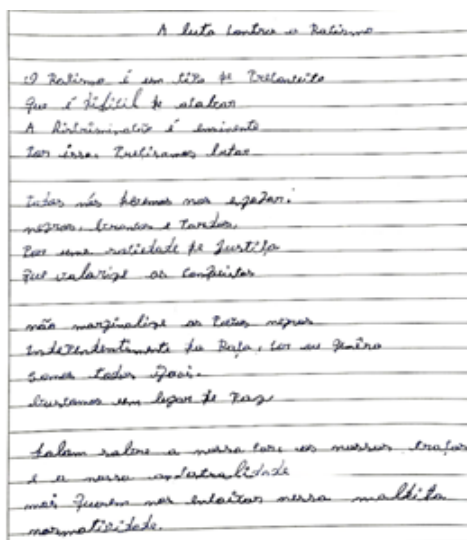 A luta contra o Racismo
O Racismo é um tipo de Preconceito
Que é difícil de acabar
A Discriminação é eminente
Por isso, Precisamos lutar
todos nós devemos nos
negros, brancos e Pardos,
Por uma sociedade de Justiça
Que valorize as conquistas
não marginalize os Povos negros
Independentimente da Raça, cor ou Genêro
somos todos iguais.
buscamos um lugar de Paz
falam sobre a nossa cor, os nossos traços
e a nossa ancestralidade
mas querem nos encaixar nessa maldita
normatividade.